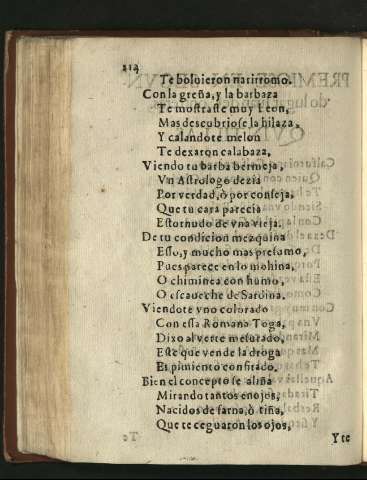 214
Te boluieron natirromo.
Con la greña, y la barbaza
Te mostraste muy Leon,
Mas descubriose la hilaza,
Y calandote melon
Te dexaron calabaza,
Viendo tu barba bermeja,
Vn Astrologo dezia
Por verdad, ò por conseja,
Que tu cara parecia
Estornudo de vna vieja.
De tu condicion mezquina
Esso, y mucho mas presumo,
Pues parece en lo mohina,
O chiminea con humo,
O escaueche de Sardina.
Viendote vno colorado
Con essa Romana Toga,
Dixo al verte mesurado,
Este que vende la droga
Es pimiento confitado.
Bien el concepto se aliña
Mirando tantos enojos,
Nacidos de sarna, ò tiña,
Que te ceguaron los ojos,
Y te